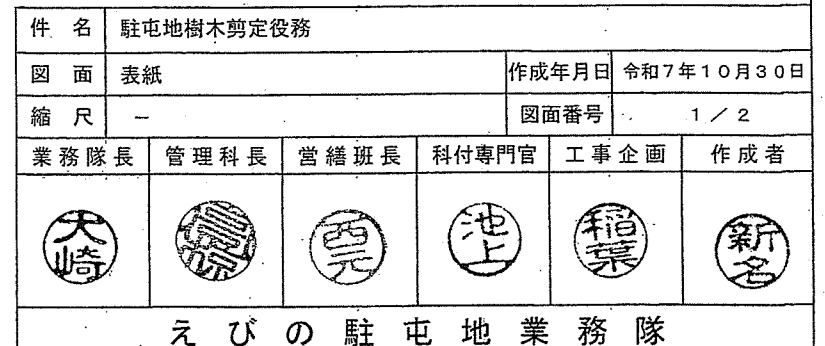 件 名 駐屯地樹木剪定役務
図 面 表紙 作成年月日 令和7年10月30日
縮 尺 － 図面番号 1／2
業務隊長 管理科長 営繕班長 科付専門官 工事企画 作成者
大崎 西元 池上 稲葉 新名
えびの駐屯地業務隊